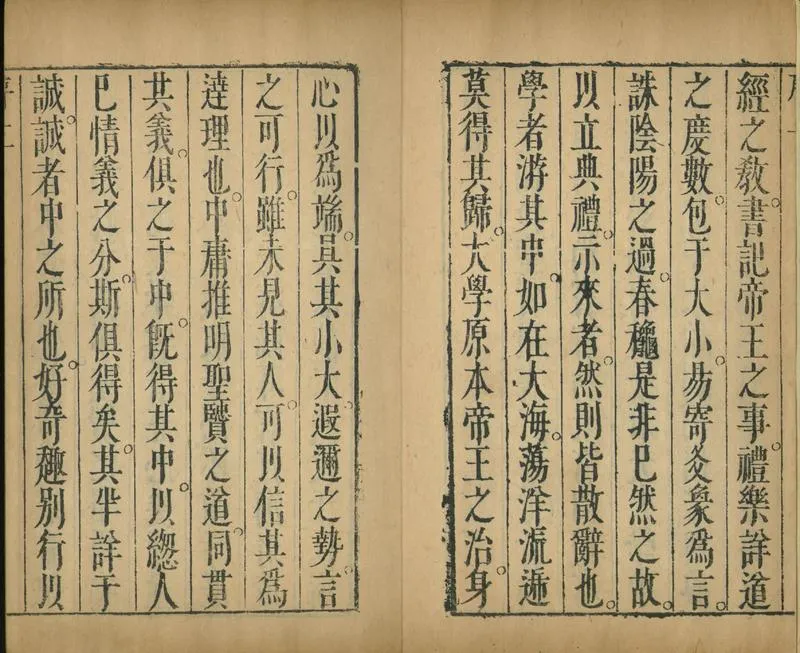 經之教。書記帝王之事。禮樂詳道
之度數。包于大小。易寄爻象爲言。
誅陰陽之過。春龝是非已然之故。
以立典禮。示來者。然則皆散辭也。
學者游其中。如在大海。蕩洋流遁
莫得其歸。大學原本帝王之治。身
心以爲端。具其小大遐邇之勢。言
之可行。雖未見其人。可以信其爲
達理也。中庸推明聖賢之道。同貫
其義。俱之于中。旣得其中。以緫人
已情義之分。斯俱得矣。其半詳于
誠。誠者中之所也。好奇趣别行以